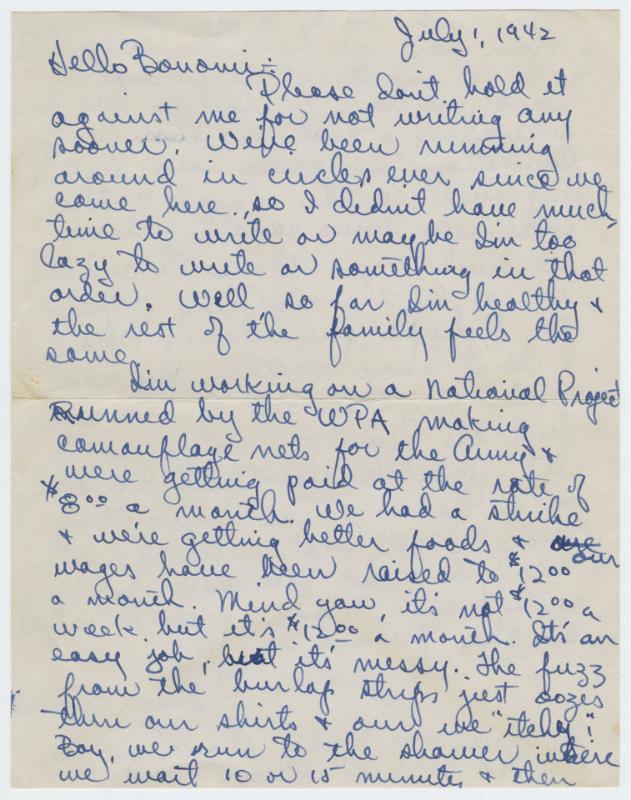 July 1, 1942
Hello Bonomi:-
Please don't hold it
against me for not writing any
sooner. We've been running
around in circles ever since we
came here, so I didn't have much
time to write or maybe I'm too
lazy to write or something in that
order. Well so far I'm healthy &
the rest of the family feels the
same.
I'm working on a National Project
runned by the WPA making
camouflage nets for the Army &
we're getting paid at the rate of
$8.00 a month. We had a strike
& we're getting better foods & our
wages have been raised to $12.00
a month. Mind you, it's not $12.00 a
week but it's $12.00 a month. It's an
easy job, but it's messy. The fuzz
from the burlap strips just oozes
thru our shirts & our we "itchy"!
Boy, we run to the shower where
we wait 10 or 15 minutes & then